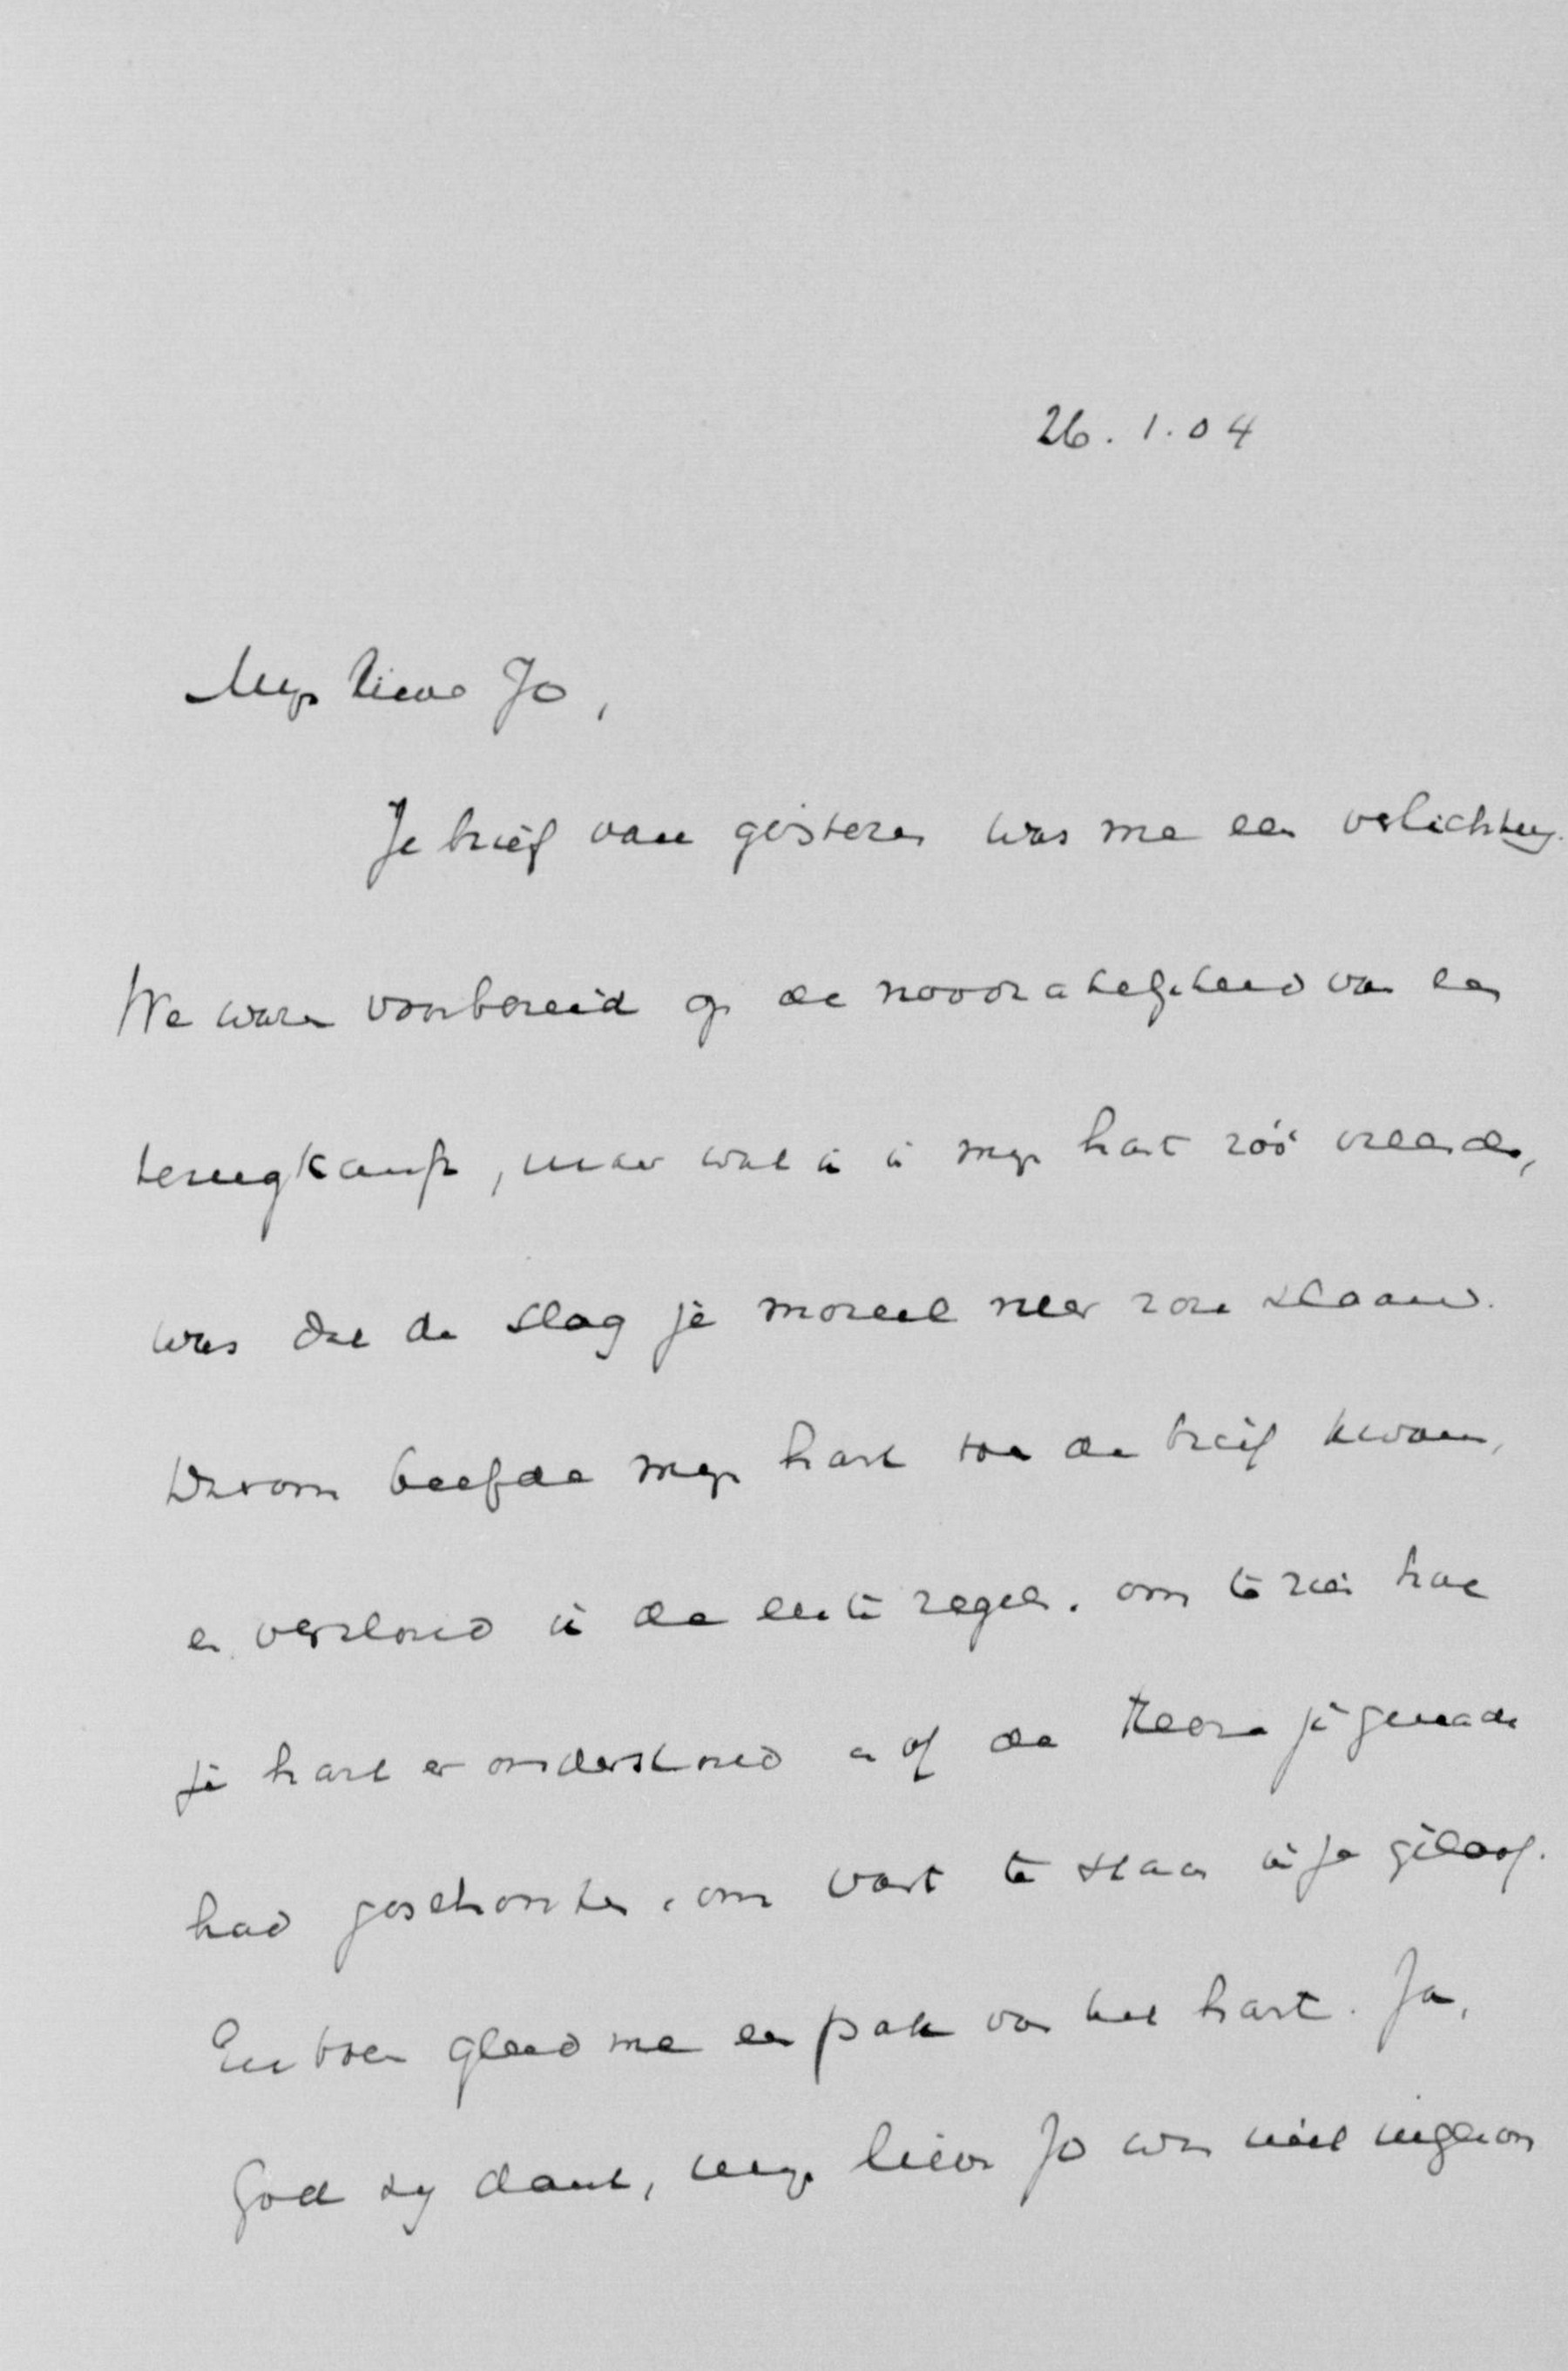 26.1.04
Mijn lieve Jo,
Je brief van gisteren was me een verlichting.
We waren voorbereid op de noodzakelijkheid van een
terugkomst, maar wat ik in mijn hart zóó vreesde,
was dat de slag je moreel neer zou slaan.
Daarom beefde mijn hart toe de brief kwam,
en verslond ik de eerste regels. om te zien hoe
je hart er onderstond en of de Heere je genade
had geschonken, om vast te staan in je geloof.
En toen gleed me een pak van het hart. Ja,
God zij dank, mijn lieve Jo was niet